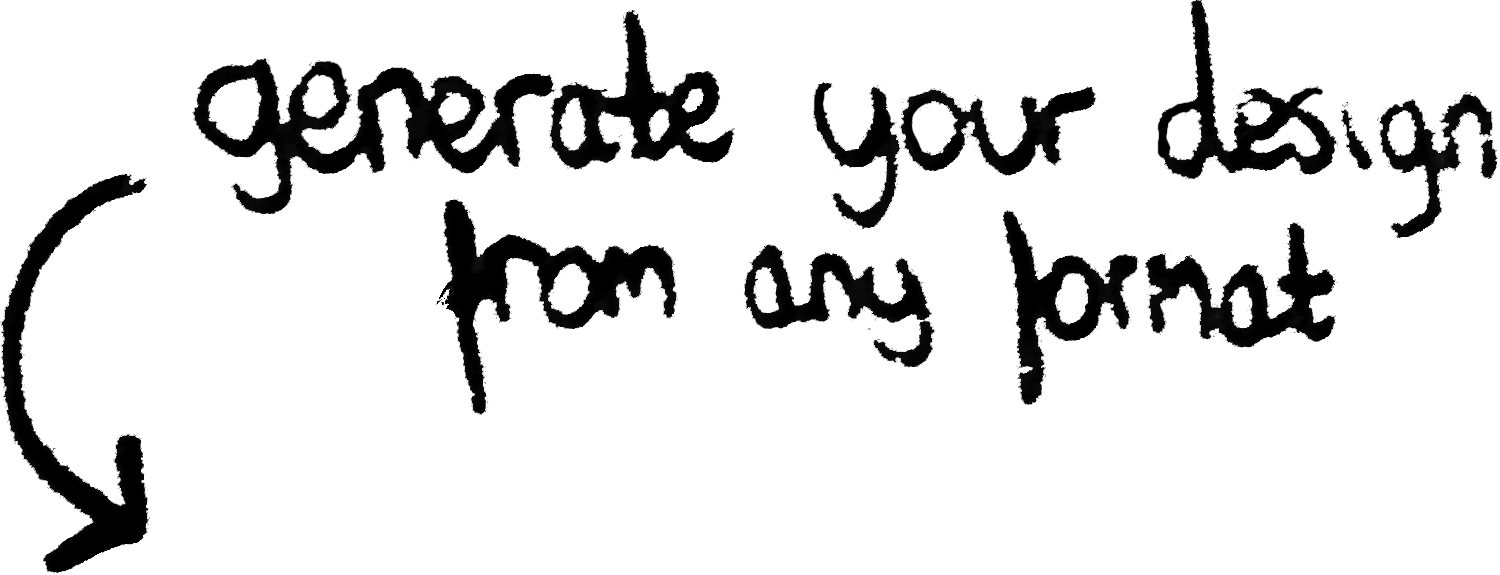 generate your design
from any format